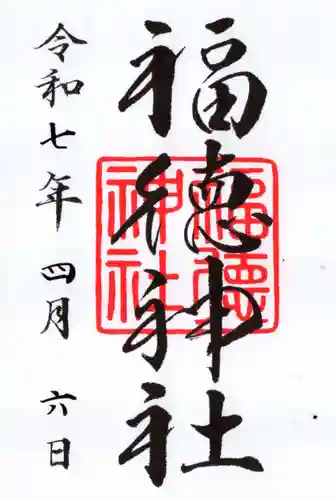 福德神社
令和七年 四月 六日
福徳
神社